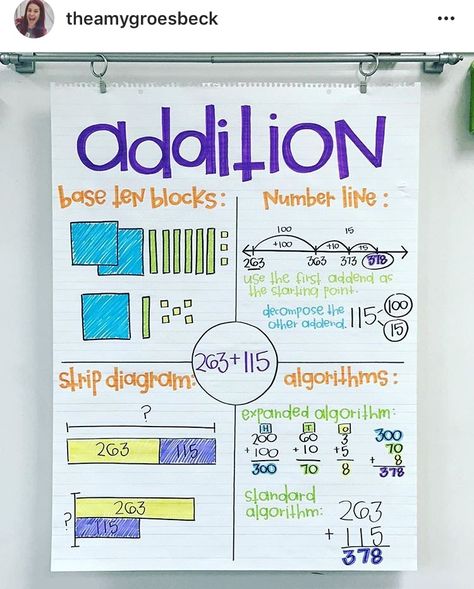 theamygroesbeck
addition
base ten blocks:
Number line:
100 15
+100 +10 +5
263 363 373 378
use the first addend as
the starting point.
decompose the
other addend.
115
100
15
263+115
strip diagram:
?
263 115
?
263
115
algorithms:
expanded algorithm:
H T O
200 60 3 300
+ 100 + 10 +5 70
300 70 8 + 8
378
standard
algorithm:
263
+ 115
378